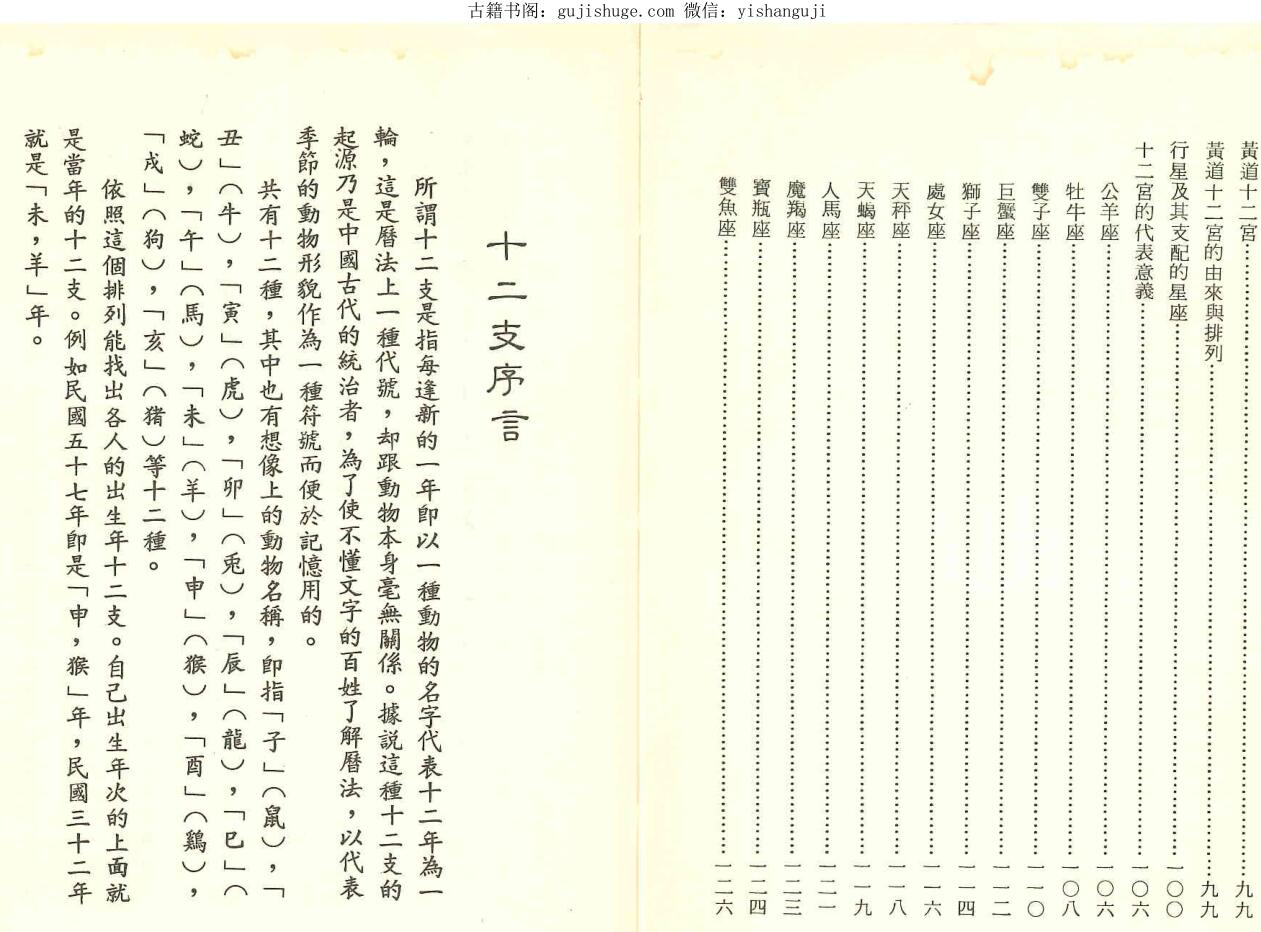 古籍书阁：gujishuge.com 微信：yishanguji
黃道十二宮……九九
黃道十二宮的由來與排列……九九
行星及其支配的星座……一〇〇
十二宮的代表意義……一〇六
公羊座……一〇六
牡牛座……一〇八
雙子座……一一〇
巨蟹座……一一二
獅子座……一一四
處女座……一一六
天秤座……一一八
天蝎座……一一九
人馬座……一二一
魔羯座……一二三
寶瓶座……一二四
雙魚座……一二六
十二支序言
所謂十二支是指每逢新的一年卽以一種動物的名字代表十二年為一
輪，這是曆法上一種代號，却跟動物本身毫無關係。據說這種十二支的
起源乃是中國古代的統治者，為了使不懂文字的百姓了解曆法，以代表
季節的動物形貌作為一種符號而便於記憶用的。
共有十二種，其中也有想像上的動物名稱，卽指「子」（鼠），「
丑」（牛），「寅」（虎），「卯」（兎），「辰」（龍），「巳」（
蛇），「午」（馬），「未」（羊），「申」（猴），「酉」（鷄），
「戌」（狗），「亥」（猪）等十二種。
依照這個排列能找出各人的出生年十二支。自己出生年次的上面就
是當年的十二支。例如民國五十七年卽是「申，猴」年，民國三十二年
就是「未，羊」年。